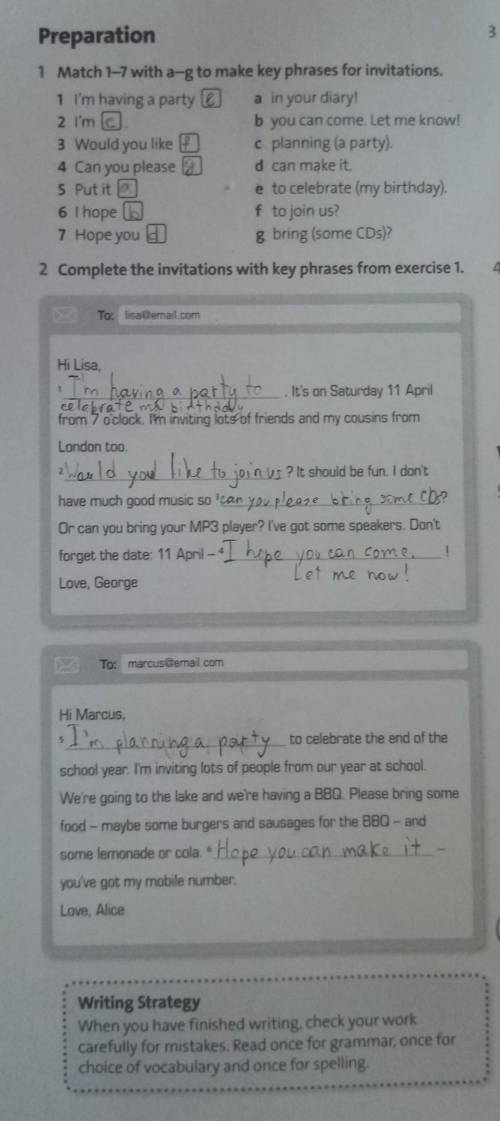 Preparation
3
1 Match 1–7 with a–g to make key phrases for invitations.
1 I'm having a party e a in your diary!
2 I'm c . b you can come. Let me know!
3 Would you like f c planning (a party).
4 Can you please g d can make it.
5 Put it a e to celebrate (my birthday).
6 I hope b f to join us?
7 Hope you d g bring (some CDs)?
2 Complete the invitations with key phrases from exercise 1.
4
To: lisa@email.com
Hi Lisa,
1 I'm having a party to . It's on Saturday 11 April
celebrate my birthday
from 7 o'clock. I'm inviting lots of friends and my cousins from
London too.
2 Would you like to join us ? It should be fun. I don't
have much good music so 3 can you please bring some CDs?
Or can you bring your MP3 player? I've got some speakers. Don't
forget the date: 11 April – 4 I hope you can come. !
Let me now!
Love, George
To: marcus@email.com
Hi Marcus,
5 I'm planning a party to celebrate the end of the
school year. I'm inviting lots of people from our year at school.
We're going to the lake and we're having a BBQ. Please bring some
food – maybe some burgers and sausages for the BBQ – and
some lemonade or cola. 6 Hope you can make it –
you've got my mobile number.
Love, Alice
Writing Strategy
When you have finished writing, check your work
carefully for mistakes. Read once for grammar, once for
choice of vocabulary and once for spelling.